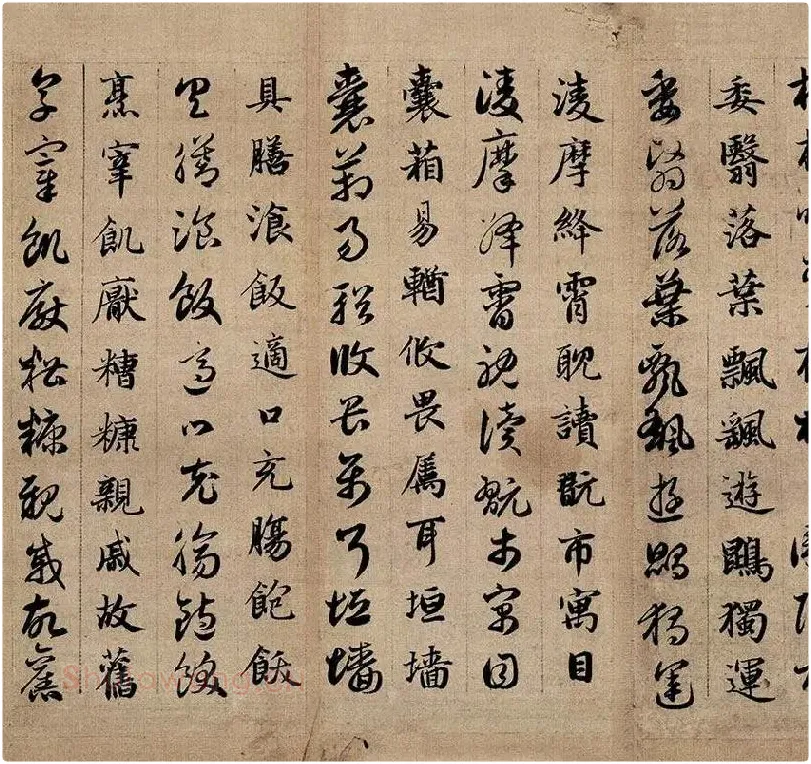 委翳落葉飄颻遊鵾獨運
委翳落葉飄颻遊鵾獨運
淩摩絳霄耽讀翫市寓目
淩摩絳霄耽讀翫市寓目
囊葙易輶攸畏屬耳垣墻
囊葙易輶攸畏屬耳垣墻
具膳飡飯適口充腸飽飫
具膳飡飯適口充腸飽飫
烹宰飢厭糟糠親戚故舊
烹宰飢厭糟糠親戚故舊